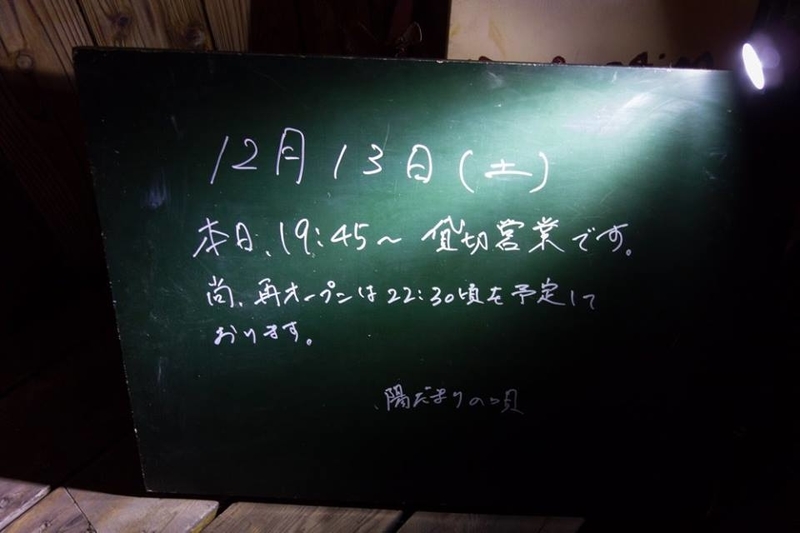 12月13日(土)
本日、19:45〜 貸切営業です。
尚、再オープンは22:30頃を予定して
おります。
陽だまりの頃